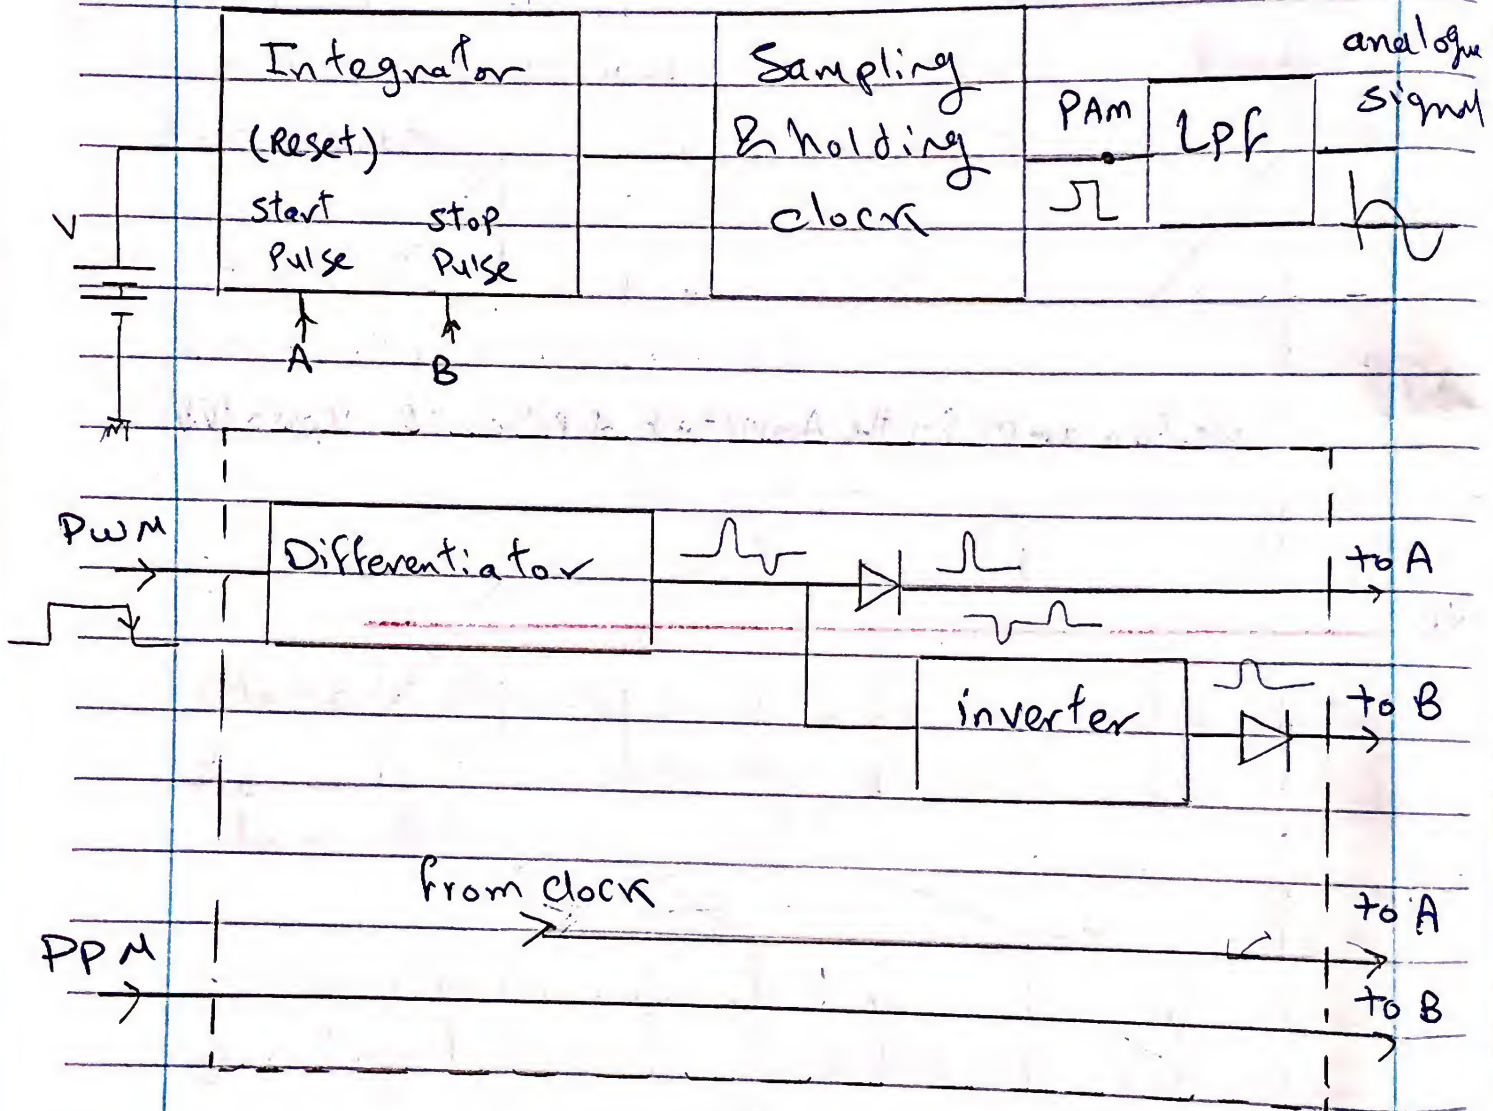 Integrator
(Reset)
start stop
Pulse Pulse
Sampling
& holding
clock
PAM
LPF
analogue
signal
V
A
B
PWM
Differentiator
to A
inverter
to B
from clock
to A
PPM
to B